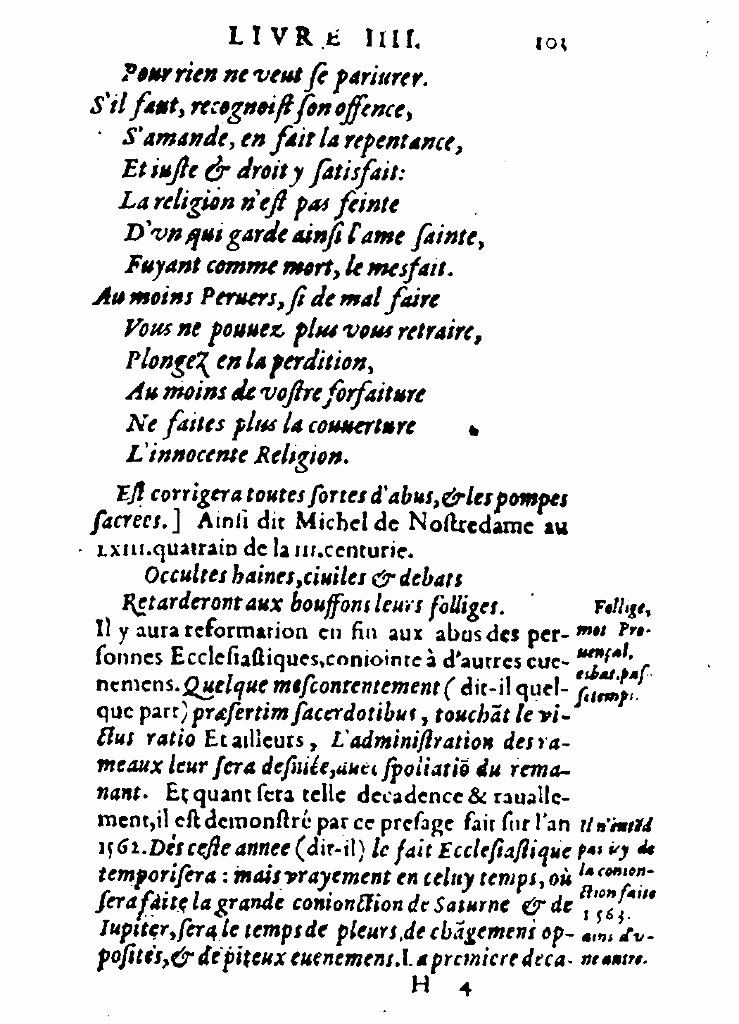 LIVRE IIII. 103
Pour rien ne veut ſe pariurer.
S'il faut, recognoiſt ſon offence,
S'amande, en fait la repentance,
Et iuſte & droit y ſatisfait:
La religion n'eſt pas feinte
D'vn qui garde ainſi l'ame ſainte,
Fuyant comme mort, le mesfait.
Au moins Peruers, ſi de mal faire
Vous ne pouuez plus vous retraire,
Plongez en la perdition,
Au moins de voſtre forfaiture
Ne faites plus la couuerture
L'innocente Religion.
Eſt corrigera toutes ſortes d'abus, & les pompes
ſacrees.] Ainſi dit Michel de Noſtredame au
LXIII. quatrain de la III. centurie.
Occultes haines, ciuiles & debats
Retarderont aux bouffons leurs folliges.
Il y aura reformation en fin aux abus des per-
ſonnes Eccleſiaſtiques, conioincte à d'autres eue-
nemens. Quelque meſcontentement ( dit-il quel-
que part) præſertim ſacerdotibus, touchãt le vi-
ctus ratio Et ailleurs, L'adminiſtration des ra-
meaux leur ſera deſniée, auec ſpoliatiõ du rema-
nant. Et quant ſera telle decadence & raualle-
ment, il eſt demonſtré par ce preſage fait ſur l'an
1562. Dés ceſte annee (dit-il) le fait Eccleſiaſtique
temporiſera : mais vrayement en celuy temps, où
ſera faite la grande conionction de Saturne & de
Iupiter, ſera le temps de pleurs, de chãgemens op-
poſites, & de piteux euenemens. La premiere deca-
Follige,
mot Pro-
uençal,
esbat, paſ-
ſetemps.
Il n'entēd
pas icy de
la conion-
ction faite
1563.
ains d'v-
ne autre.
H 4